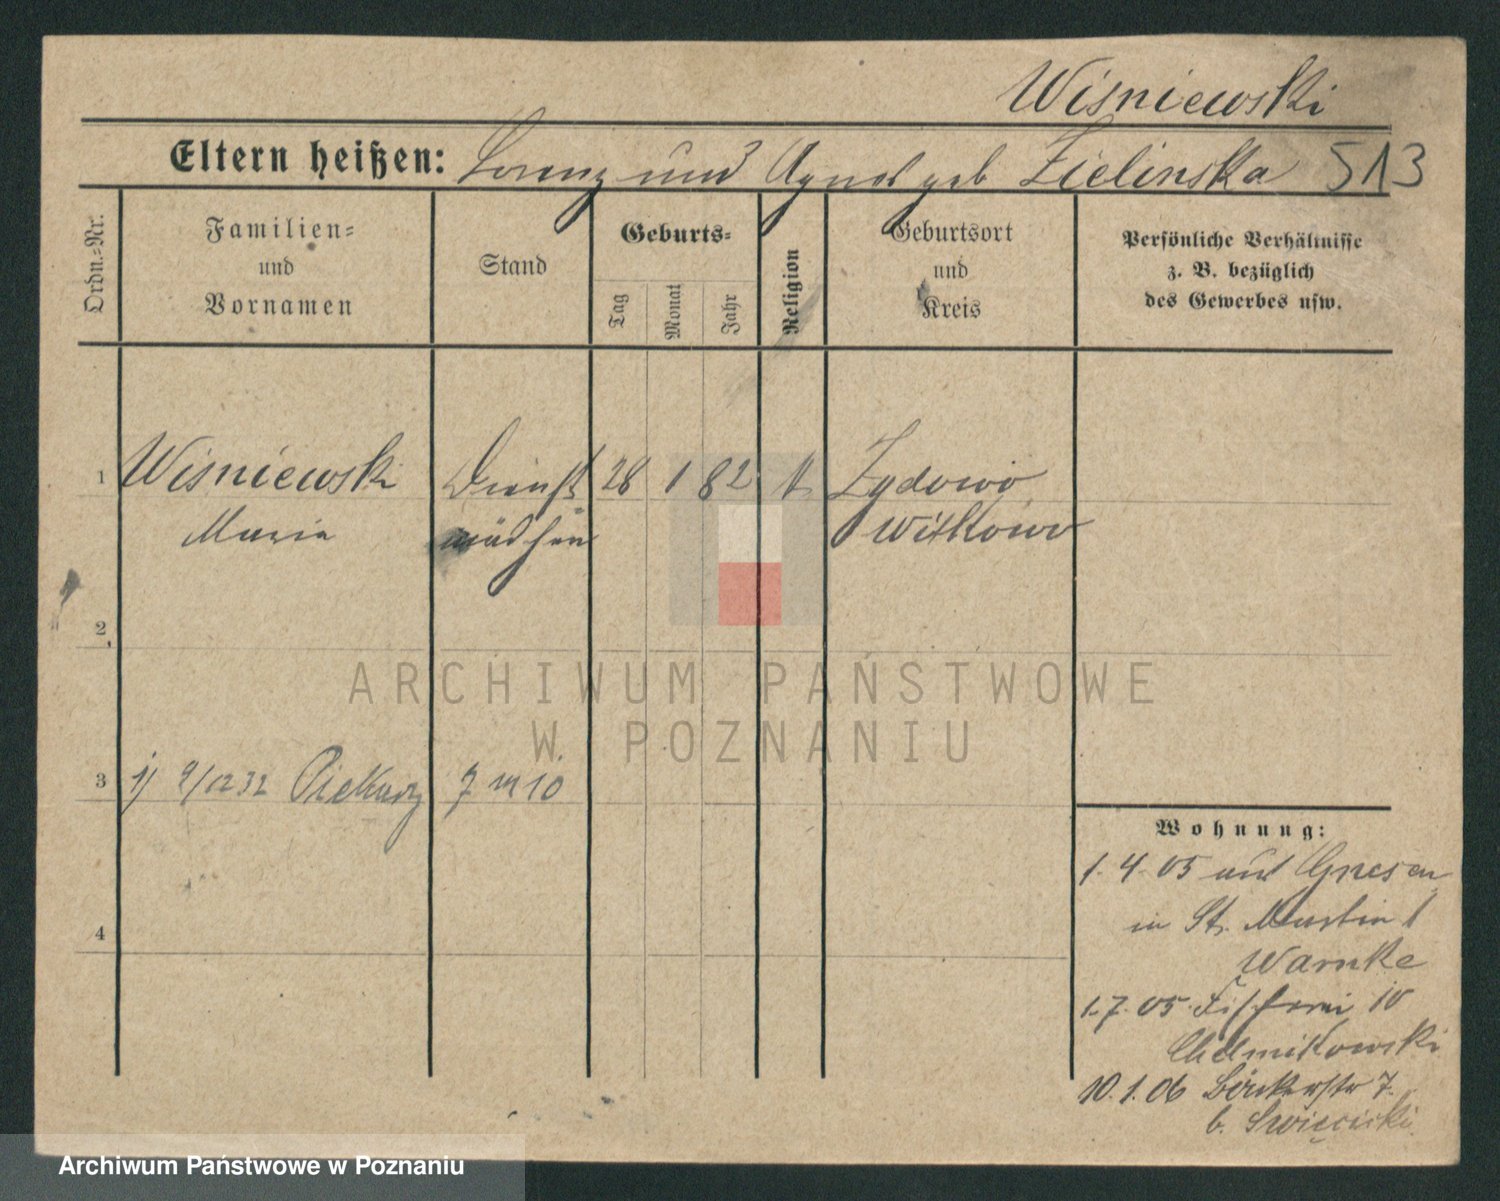 Wiśniewski
Eltern heißen: Lorenz und Agnes geb Zielinska 513
Ordn.-Nr.
Familien=
und
Vornamen
Stand
Geburts=
Tag
Monat
Jahr
Religion
Geburtsort
und
Kreis
Persönliche Verhältnisse
z. B. bezüglich
des Gewerbes usw.
1 Wiśniewski Dienst 28 1 82 k Zydowo
Maria mädchen Witkowo
2
ARCHIWUM PAŃSTWOWE
W POZNANIU
3 1) 9/12 32 Piekary 7 m 10
Wohnung:
1. 4. 05 aus Gnesen
in St. Martin 1
Warnke
1. 7. 05 Fischerei 10
Chelmikowski
4
10. 1. 06 Bäckerstr 7.
b. Swięcicki
Archiwum Państwowe w Poznaniu